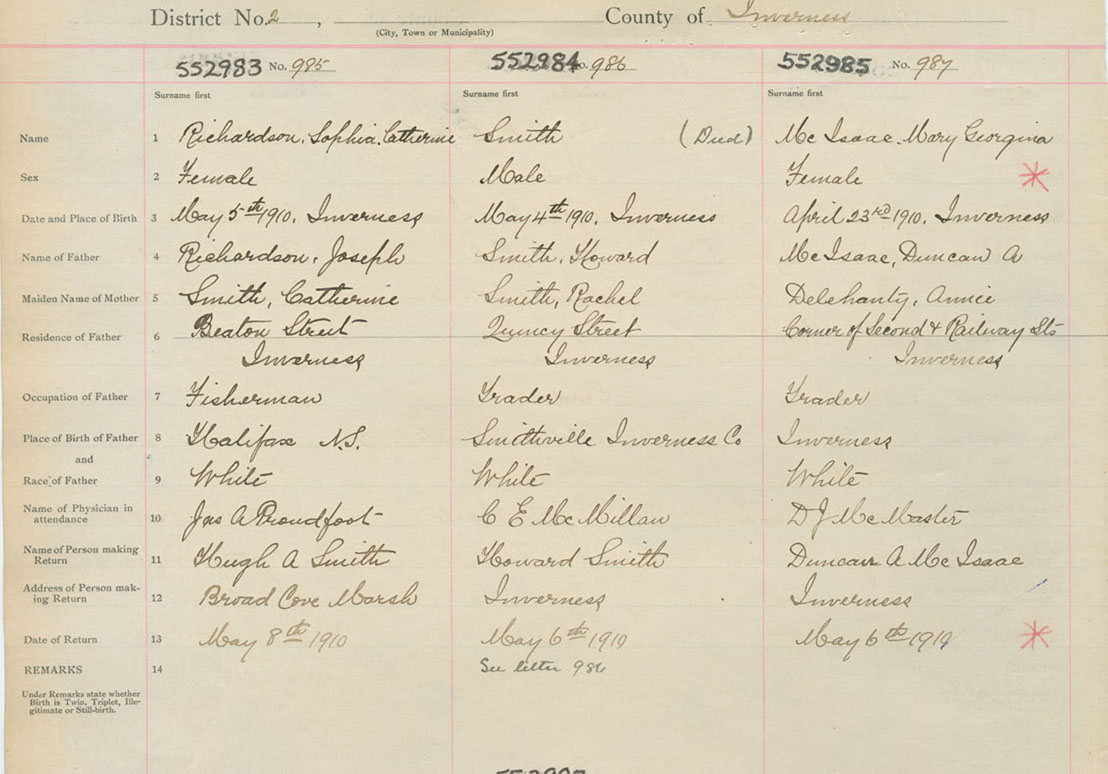 District No. 2 , County of Inverness
(City, Town or Municipality)
552983 No. 985 552984 No. 986 552985 No. 987
Surname first Surname first Surname first
Name 1 Richardson, Sophia Catherine Smith (Died) Mc Isaac Mary Georgina
Sex 2 Female Male Female
Date and Place of Birth 3 May 5th 1910. Inverness May 4th 1910. Inverness April 23rd 1910. Inverness
Name of Father 4 Richardson, Joseph Smith, Howard Mc Isaac, Duncan A
Maiden Name of Mother 5 Smith, Catherine Smith, Rachel Delehanty, Annie
Residence of Father 6 Beaton Street Quincy Street Corner of Second & Railway Sts
Inverness Inverness Inverness
Occupation of Father 7 Fisherman Trader Trader
Place of Birth of Father 8 Halifax N.S. Smithville Inverness Co Inverness
and
Race of Father 9 White White White
Name of Physician in attendance 10 Jas A Proudfoot C E Mc Millan D J Mc Master
Name of Person making Return 11 Hugh A Smith Howard Smith Duncan A Mc Isaac
Address of Person mak-
ing Return 12 Broad Cove Marsh Inverness Inverness
Date of Return 13 May 8th 1910 May 6th 1910 May 6th 1910
REMARKS 14 See letter 986
Under Remarks state whether
Birth is Twin, Triplet, Ille-
gitimate or Still-birth.